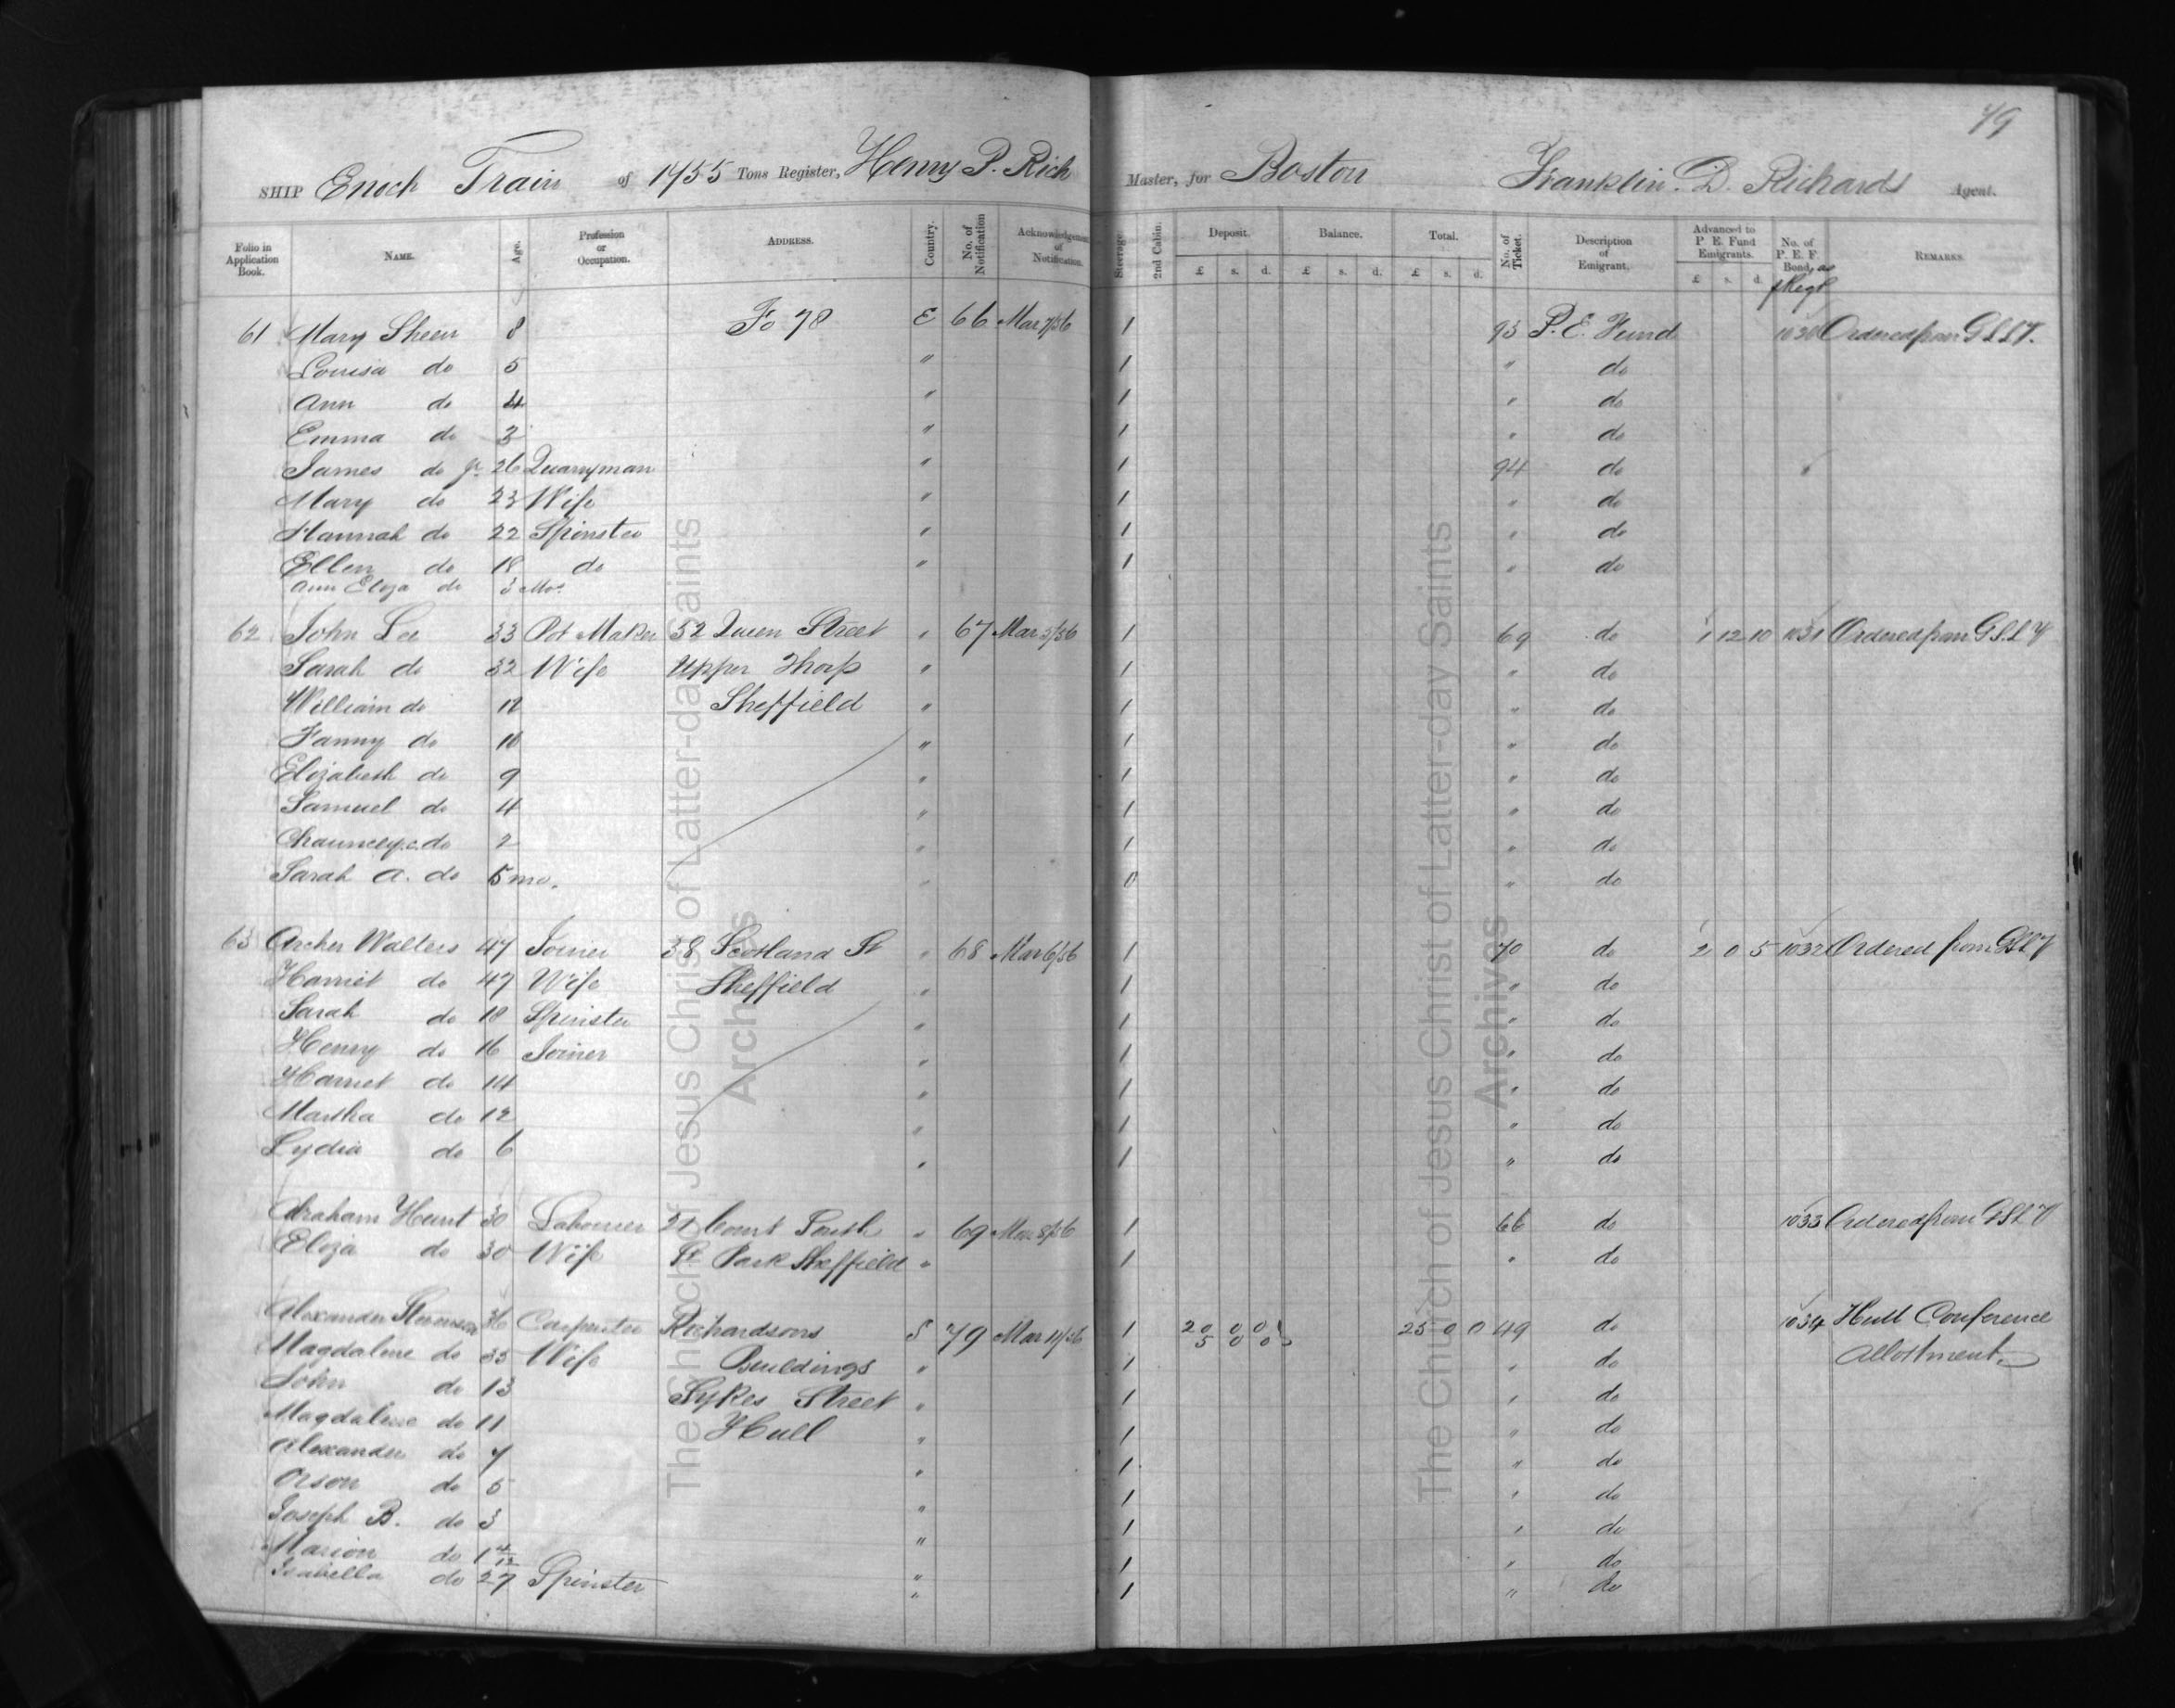 79
SHIP Enoch Train of 1755 Tons Register, Henry P. Rich Master, for Boston Franklin D. Richards Agent.
Folio in Application Book. NAME. Age. Profession or Occupation. ADDRESS. Country. No. of Notification Acknowledgement of Notification. Steerage 2nd Cabin. Deposit. £ s. d. Balance. £ s. d. Total. £ s. d. No. of Ticket. Description of Emigrant. Advanced to P. E. Fund Emigrants. £ s. d. No. of P. E. F. Bond, REMARKS.
61 Mary Sheen 8 Fo 78 E 66 Mar 7/56 1 93 P. E. Fund 1030 Ordered from G S L V.
Louisa do 5 " 1 " do
Ann do 4 " 1 " do
Emma do 2 " 1 " do
James do Jr. 26 Quarryman " 1 94 do
Mary do 23 Wife " 1 " do
Hannah do 22 Spinster " 1 " do
Ellen do 18 do " 1 " do
Ann Eliza do 3 Mos.
62 John Lee 33 Pot Maker 52 Queen Street " 67 Mar 5/56 1 69 do 1 12 10 1031 Ordered from G S L V
Sarah do 32 Wife Upper Thorp " 1 " do
William do 12 Sheffield " 1 " do
Fanny do 10 " 1 " do
Elizabeth do 9 " 1 " do
Samuel do 4 " 1 " do
Chauncey c. do 2 " 1 " do
Sarah A. do 5 mo. " 0 " do
63 Archer Walters 47 Joiner 38 Scotland St " 68 Mar 6/56 1 70 do 2 0 5 1032 Ordered from GSLV
Harriet do 47 Wife Sheffield " 1 " do
Sarah do 18 Spinster " 1 " do
Henry do 16 Joiner " 1 " do
Harriet do 14 " 1 " do
Martha do 12 " 1 " do
Lydia do 6 " 1 " do
Abraham Hunt 30 Labourer 21 Court South " 69 Mar 8/56 1 66 do 1033 Ordered from GSLV
Eliza do 30 Wife St Park Sheffield " 1 " do
Alexander Stevenson 36 Carpenter Richardsons S 79 Mar 11/56 1 20 0 0 25 0 0 49 do 1034 Hull Conference
5 0 0
Magdalene do 35 Wife Buildings " 1 " do Allottment.
John do 13 Sykes Street " 1 " do
Magdalene do 11 Hull " 1 " do
Alexander do 7 " 1 " do
Orson do 5 " 1 " do
Joseph B. do 3 " 1 " do
Marion do 1 4/12 " 1 " do
Isabella do 27 Spinster " 1 " do
The Church of Jesus Christ of Latter-day Saints
Archives
The Church of Jesus Christ of Latter-day Saints
Archives